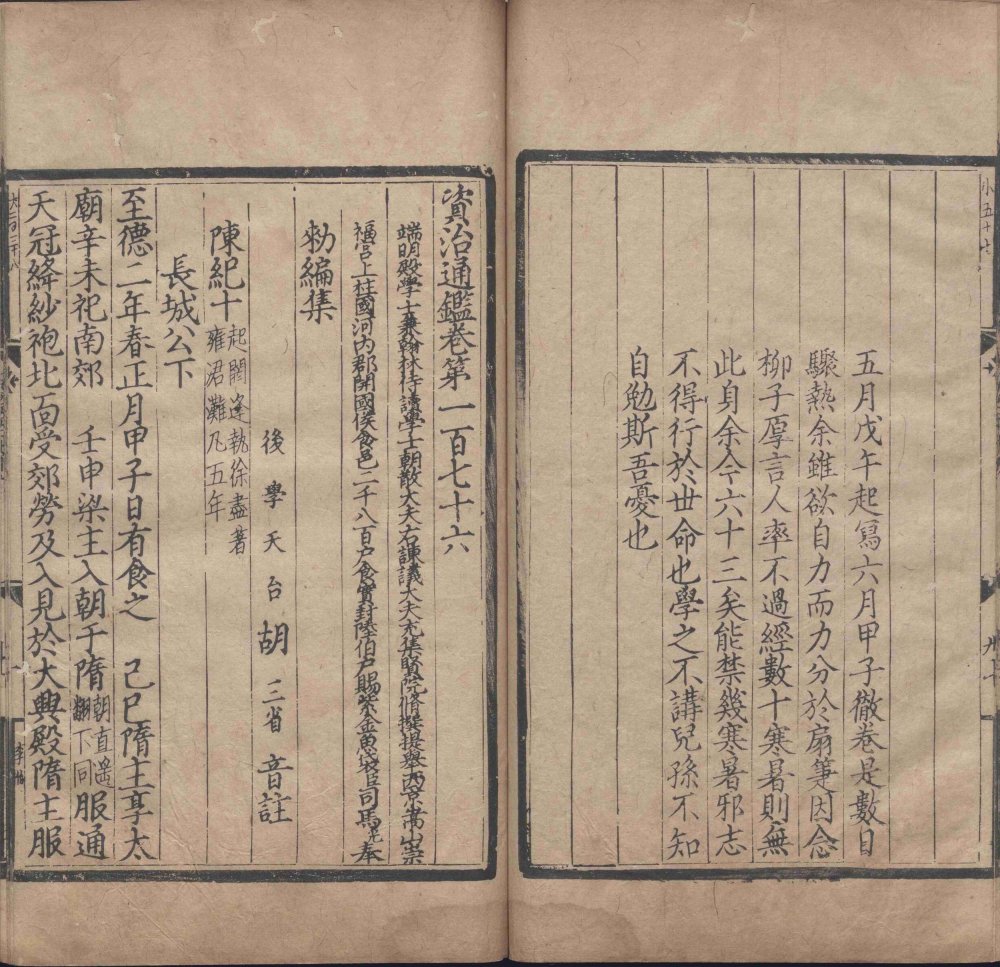 五月戊午起寫六月甲子徹卷是數日
驟熱余雖欲自力而力分於扇箑因念
柳子厚言人率不過經數十寒暑則無
此身余今六十三矣能禁幾寒暑邪志
不得行於世命也學之不講兒孫不知
自勉斯吾憂也
資治通鑑卷第一百七十六
端明殿學士兼翰林侍讀學士朝散大夫右諫議大夫充集賢院脩撰提舉西京嵩山崇
福宮上柱國河內郡開國侯食邑二千八百戶食實封陸伯戶賜紫金魚袋臣司馬光奉
勑編集
後學天台胡三省音註
陳紀十起閼逢執徐盡著雍涒灘凡五年
長城公下
至德二年春正月甲子日有食之 己巳隋主享太
廟辛未祀南郊 壬申梁主入朝于隋朝直遙翻下同服通
天冠絳紗袍北面受郊勞及入見於大興殿隋主服